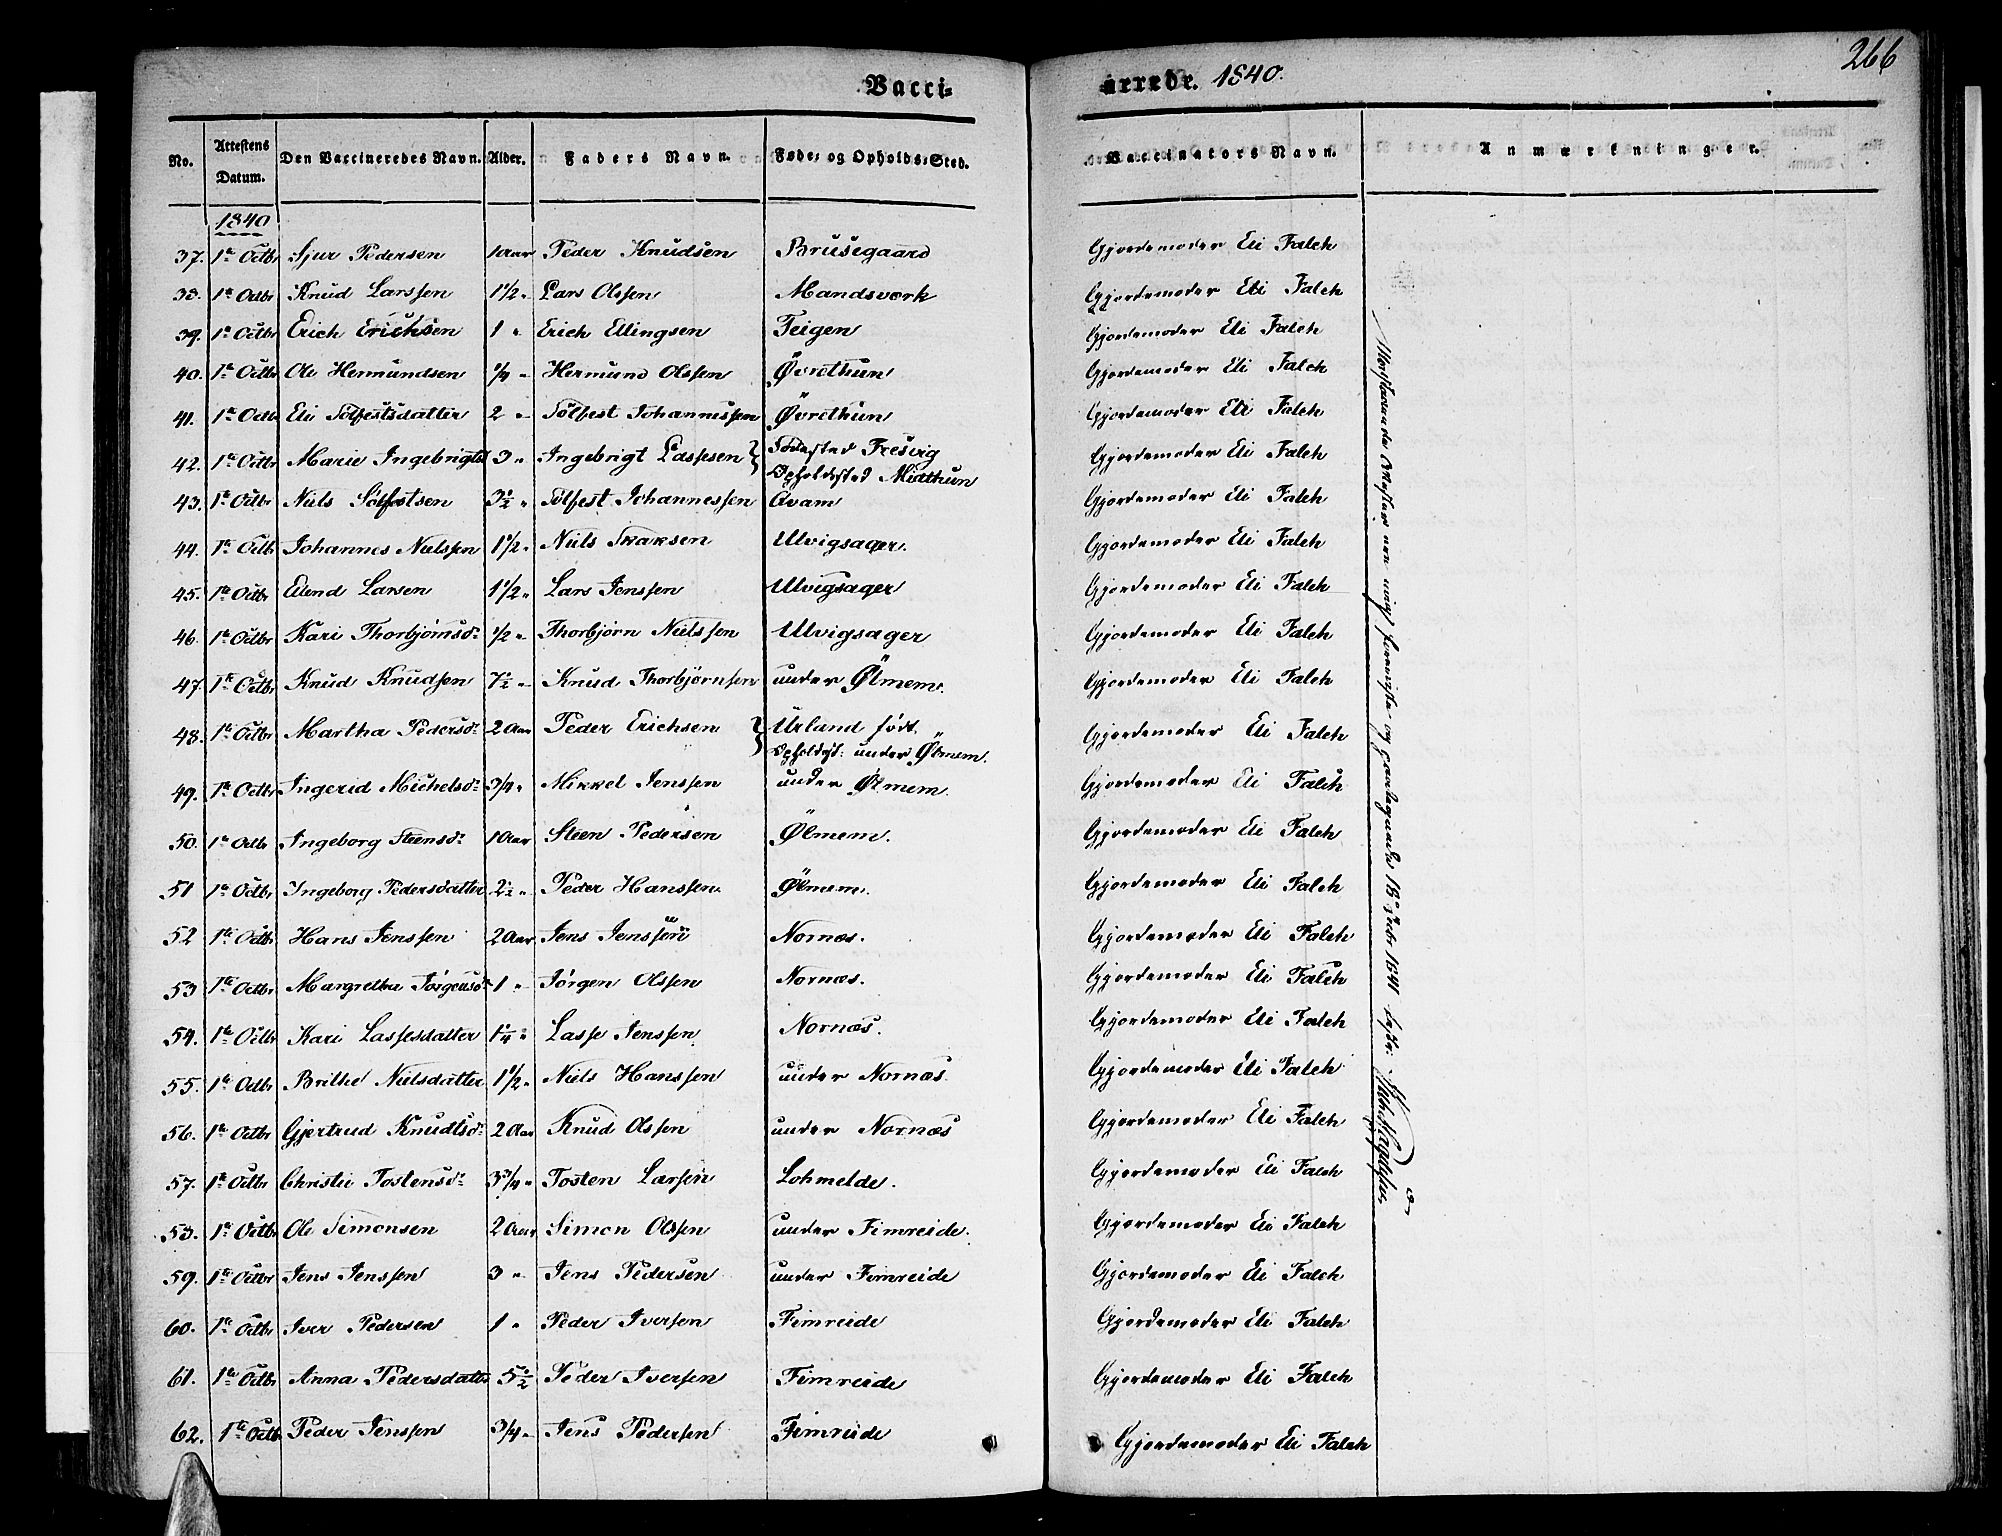 266
Vacci- nerede. 1840.
No. Attestens Datum. Den Vaccineredes Navn. Alder. Faders Navn. Føde- og Opholds-Sted. Vaccinators Navn. Anmærkninger.
1840
37. 1te Octbr Sjur Pedersen 1 Aar Peder Knudsen Brusegaard Gjordemoder Eli Falch
38. 1te Octbr Knud Larssen 1 1/2 " Lars Olssen Mandsværk Gjordemoder Eli Falch
39. 1te Octbr Erich Erichsen 1 " Erich Ellingsen Teigen Gjordemoder Eli Falch
40. 1te Octbr Ole Hermundsen 1/4 " Hermund Olssen Øvrethun Gjordemoder Eli Falch
41. 1te Octbr Eli Tolfestsdatter 2 " Tolfest Johannessen Øvrethun Gjordemoder Eli Falch
42. 1te Octbr Marie Ingebrigtsd 3 " Ingebrigt Lassesen } Fødested Fresvig Gjordemoder Eli Falch
Opholdsted Midthun
43. 1te Octbr Niels Solfestsen 3 1/2 " Solfest Johannessen Avam Gjordemoder Eli Falch
44. 1te Octbr Johannes Nielssen 1 1/2 " Niels Skaksen Ulvigsager. Gjordemoder Eli Falch
45. 1te Octbr Elend Larsen 1 1/2 " Lars Jenssen Ulvigsager Gjordemoder Eli Falch
46. 1te Octbr Kari Thorbjörnsdr 1/2 " Thorbjörn Nielssen Ulvigsager Gjordemoder Eli Falch
47. 1te Octbr Knud Knudsen 7 1/2 " Knud Thorbjörnsen under Ölmem. Gjordemoder Eli Falch
48. 1te Octbr Martha Pedersdr 2 Aar Peder Erichsen } Urland født. Gjordemoder Eli Falch
Opholdsst: under Ölmem.
49. 1te Octbr Ingerid Michelsdr 3/4 " Mikkel Jenssen under Ölmem. Gjordemoder Eli Falch
50. 1te Octbr Ingeborg Steensdr 1 Aar Steen Pedersen Ölmem. Gjordemoder Eli Falch
51 1te Octbr Ingeborg Pedersdatter 2 1/2 " Peder Hanssen Ölmem. Gjordemoder Eli Falch
52 1te Octbr Hans Jenssen 2 Aar Jens Jenssen Nornæs. Gjordemoder Eli Falch
53 1te Octbr Margrethe Jörgensdr 1 " Jörgen Olssen Nornæs. Gjordemoder Eli Falch
54. 1te Octbr Kari Lassesdatter 1 1/4 " Lasse Jenssen Nornæs. Gjordemoder Eli Falch
55. 1te Octbr Brithe Nielsdatter 1 1/2 " Niels Hanssen under Nornæs. Gjordemoder Eli Falch
56. 1te Octbr Gjertrud Knudtsdr 2 Aar Knud Olssen under Nornæs Gjordemoder Eli Falch
57. 1te Octbr Christie Tostensdr 3/4 " Tosten Larsen Lohmelde. Gjordemoder Eli Falch
58. 1te Octbr Ole Simonsen 2 Aar Simon Olssen under Fimreide. Gjordemoder Eli Falch
59. 1te Octbr Jens Jenssen 3 " Jens Pedersen under Fimreide Gjordemoder Eli Falch
60. 1te Octbr Iver Pedersen 1 " Peder Iversen Fimreide Gjordemoder Eli Falch
61. 1te Octbr Anna Pedersdatter 5 1/2 " Peder Iversen Fimreide Gjordemoder Eli Falch
62. 1te Octbr Peder Jenssen 3/4 " Jens Pedersen Fimreide Gjordemoder Eli Falch